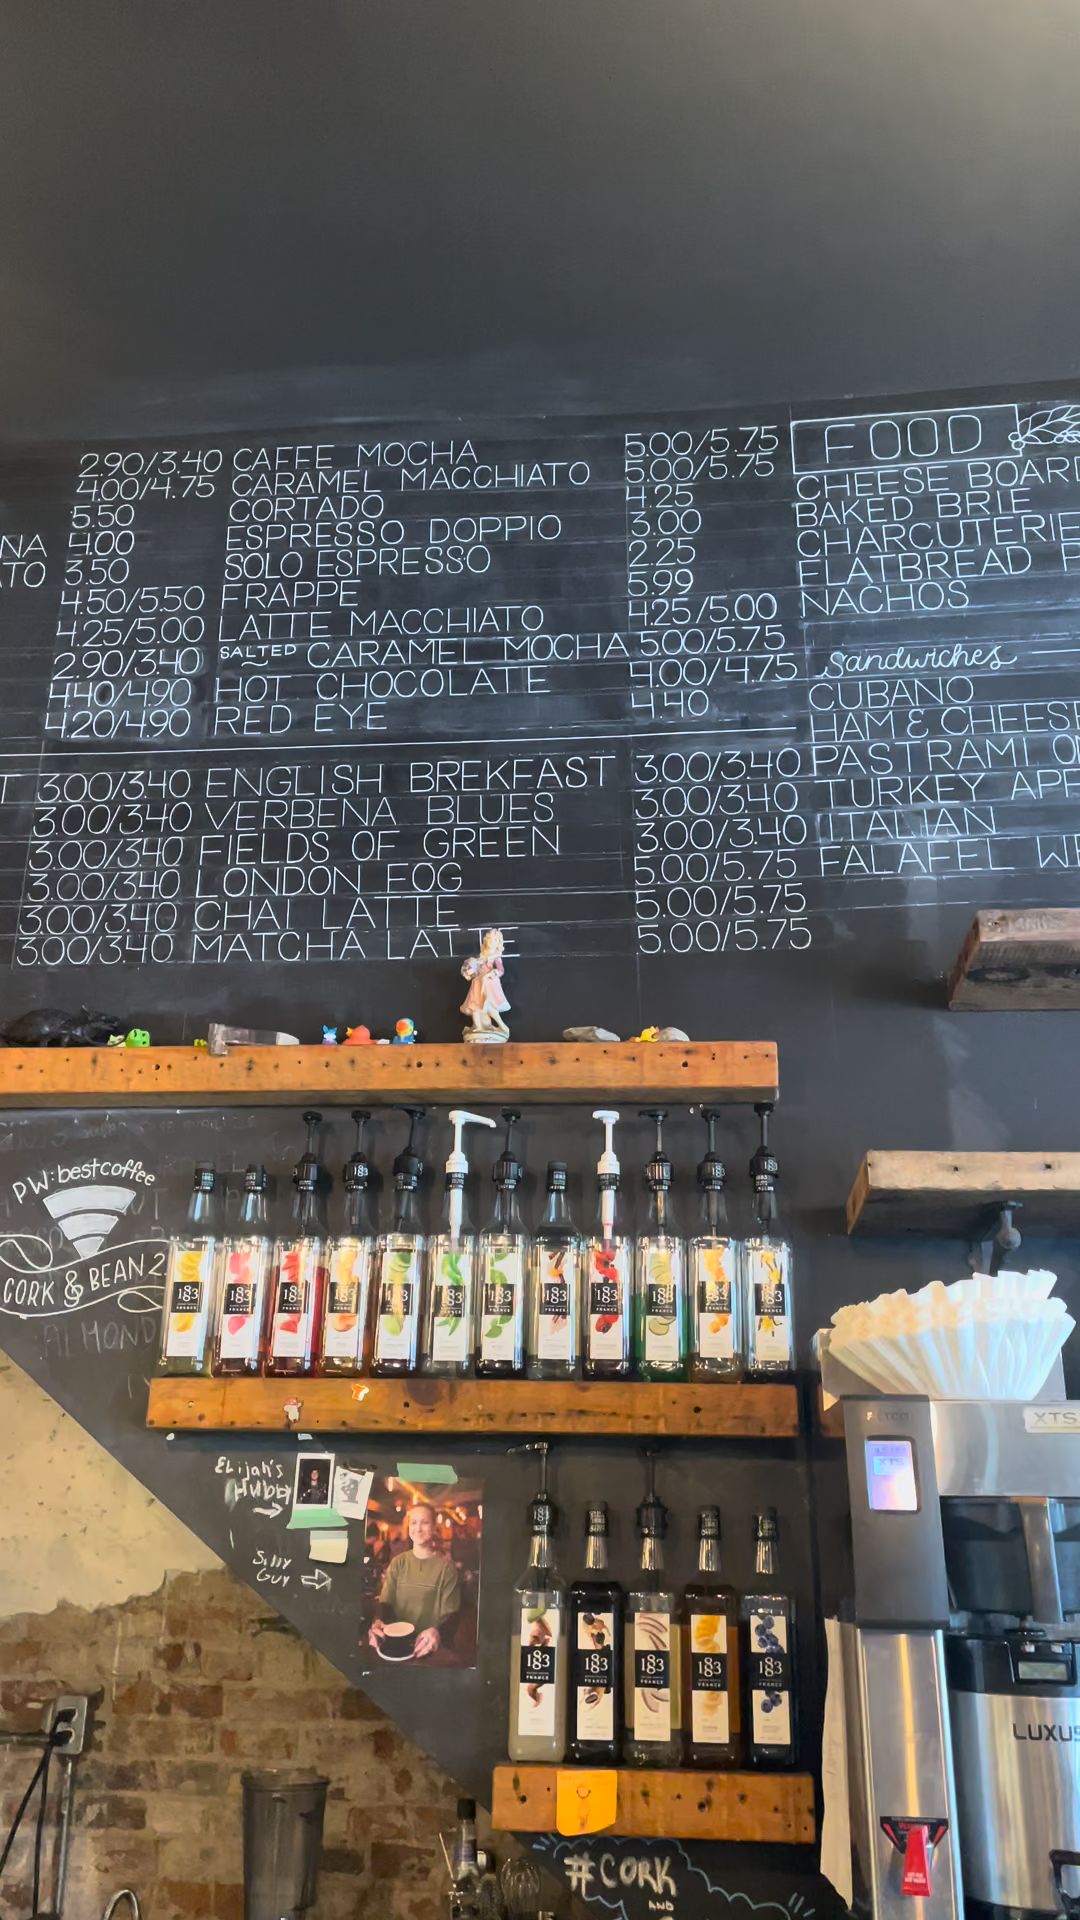 2.90/3.40 CAFFE MOCHA 5.00/5.75
4.00/4.75 CARAMEL MACCHIATO 5.00/5.75
5.50 CORTADO 4.25
NA 4.00 ESPRESSO DOPPIO 3.00
TO 3.50 SOLO ESPRESSO 2.25
4.50/5.50 FRAPPE 5.99
4.25/5.00 LATTE MACCHIATO 4.25/5.00
2.90/3.40 SALTED CARAMEL MOCHA 5.00/5.75
4.40/4.90 HOT CHOCOLATE 4.00/4.75
4.20/4.90 RED EYE 4.40
T 3.00/3.40 ENGLISH BREKFAST 3.00/3.40
3.00/3.40 VERBENA BLUES 3.00/3.40
3.00/3.40 FIELDS OF GREEN 3.00/3.40
3.00/3.40 LONDON FOG 5.00/5.75
3.00/3.40 CHAI LATTE 5.00/5.75
3.00/3.40 MATCHA LATTE 5.00/5.75
FOOD
CHEESE BOARD
BAKED BRIE
CHARCUTERIE
FLATBREAD P
NACHOS
Sandwiches
CUBANO
HAM & CHEESE
PASTRAMI ON
TURKEY APP
ITALIAN
FALAFEL WR
PW: bestcoffee
CORK & BEAN 2
ALMOND
1883
FRANCE
1883
1883
1883
1883
1883
1883
1883
1883
1883
1883
1883
Elijah's
Hubby
Silly
Guy
1883
FRANCE
1883
FRANCE
1883
FRANCE
1883
FRANCE
1883
FRANCE
FETCO
XTS
XTS
LUXUS
#CORK
AND